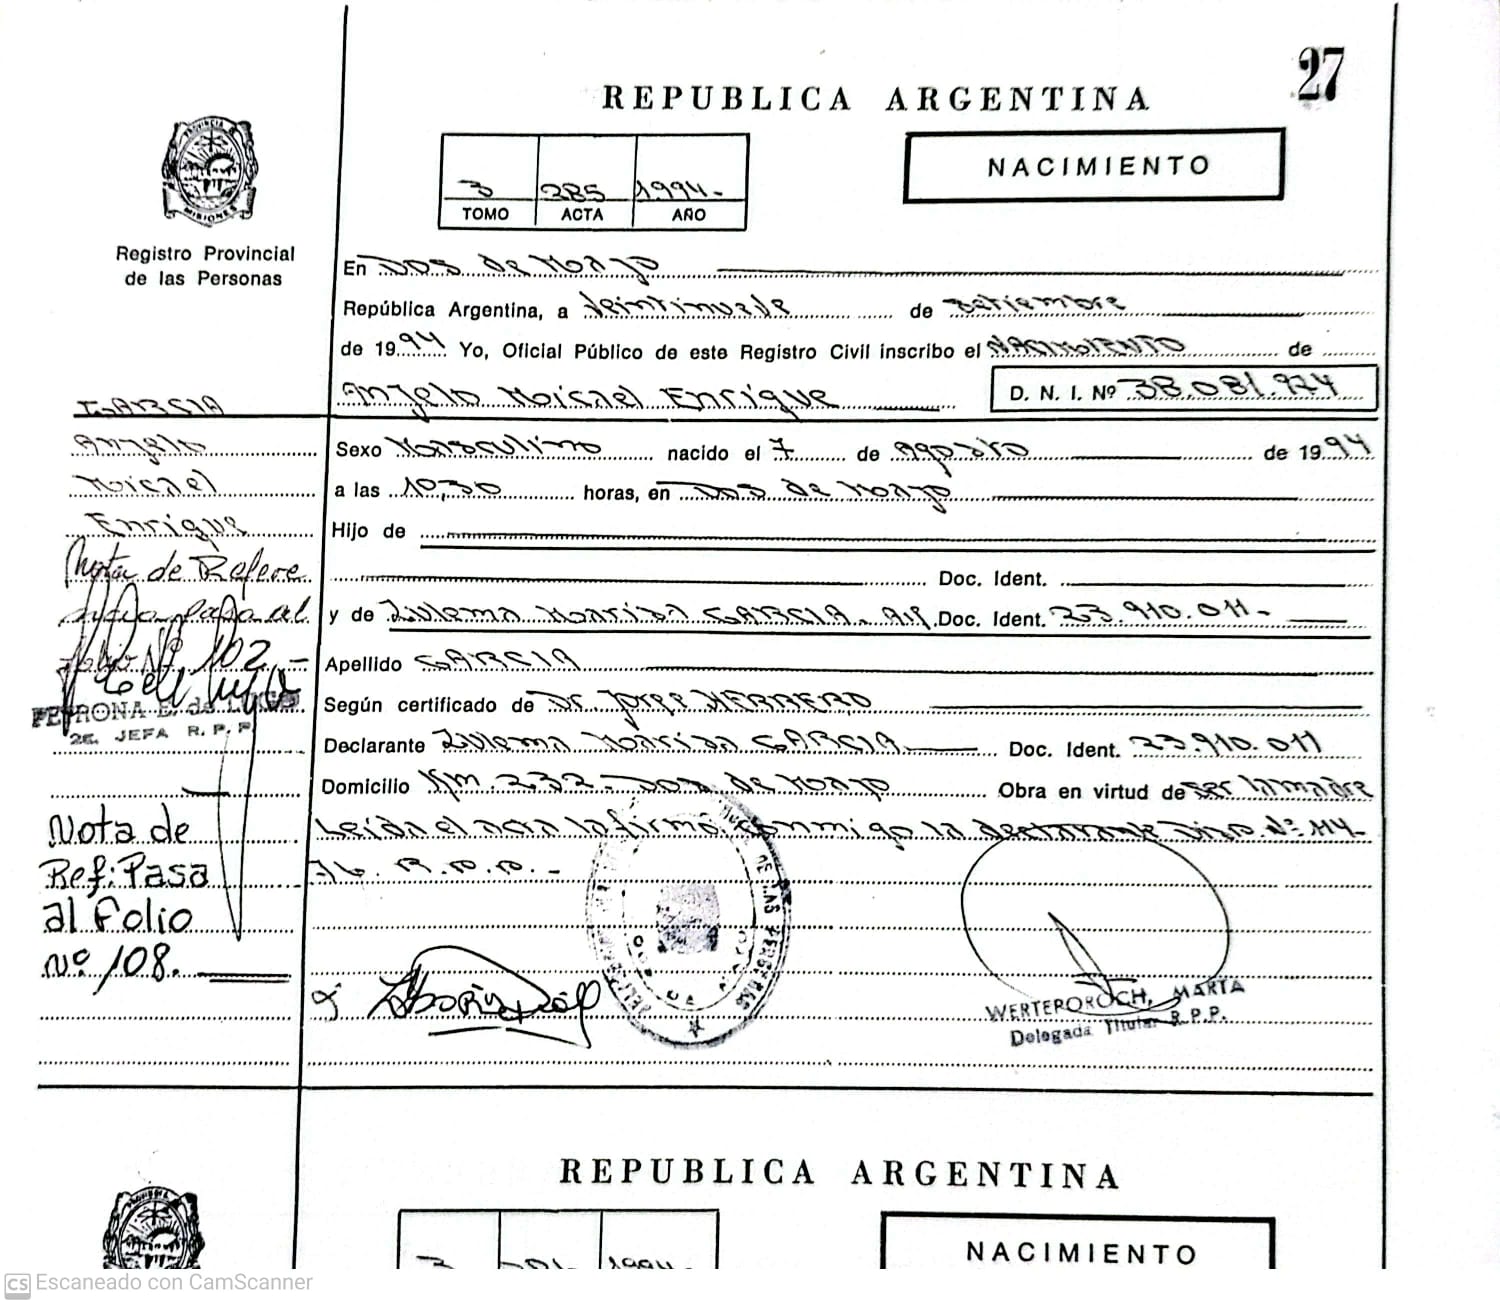 27
REPUBLICA ARGENTINA
NACIMIENTO
3 285 1994-
TOMO ACTA AÑO
PROVINCIA DE
MISIONES
Registro Provincial
de las Personas
En Dos de Mayo
República Argentina, a veintinueve de setiembre
de 1994 Yo, Oficial Público de este Registro Civil inscribo el NACIMIENTO de
Angelo Moisael Enrique D. N. I. Nº 38.081.974
GARCIA
Angelo
Moisael
Enrique
Nota de Refere
pasa al
Folio Nº 102.-
PETRONA E. de LUGO
JEFA R. P. P.
Nota de
Ref: Pasa
al folio
Nº 108.
Sexo Masculino nacido el 7 de Agosto de 1994
a las 10,30 horas, en Dos de Mayo
Hijo de
Doc. Ident.
y de Zulema Marisa GARCIA. Arg. Doc. Ident. 23.910.011-
Apellido GARCIA
Según certificado de Dr. Jorge HERRERO
Declarante Zulema Marisa GARCIA Doc. Ident. 23.910.011
Domicilio Km. 232- Dos de Mayo Obra en virtud de ser la madre
Leída el acta la firma conmigo la declarante Disp. Nº 114-
76. R.P.P.-
DE LAS PERSONAS
WERTEROROCH, MARTA
Delegada Titular R.P.P.
REPUBLICA ARGENTINA
NACIMIENTO
3 1994
CS Escaneado con CamScanner